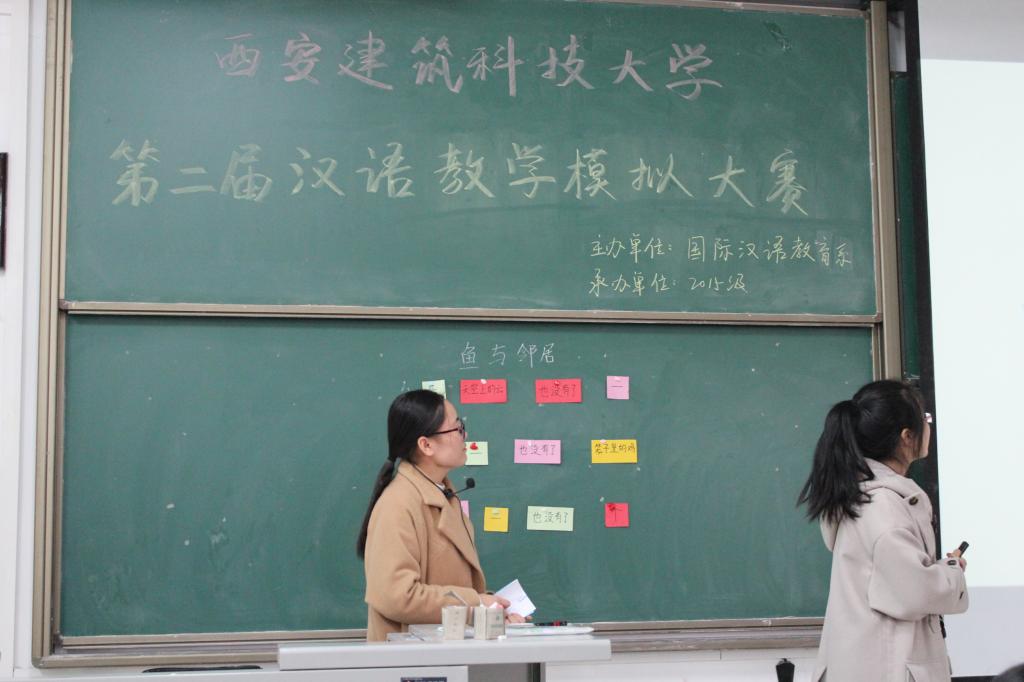 西安建筑科技大学
第二届汉语教学模拟大赛
主办单位：国际汉语教育系
承办单位：2015级
鱼与邻居
天空上的云 也没有了 一
一 也没有了 笼子里的鸡
二 也没有了 个